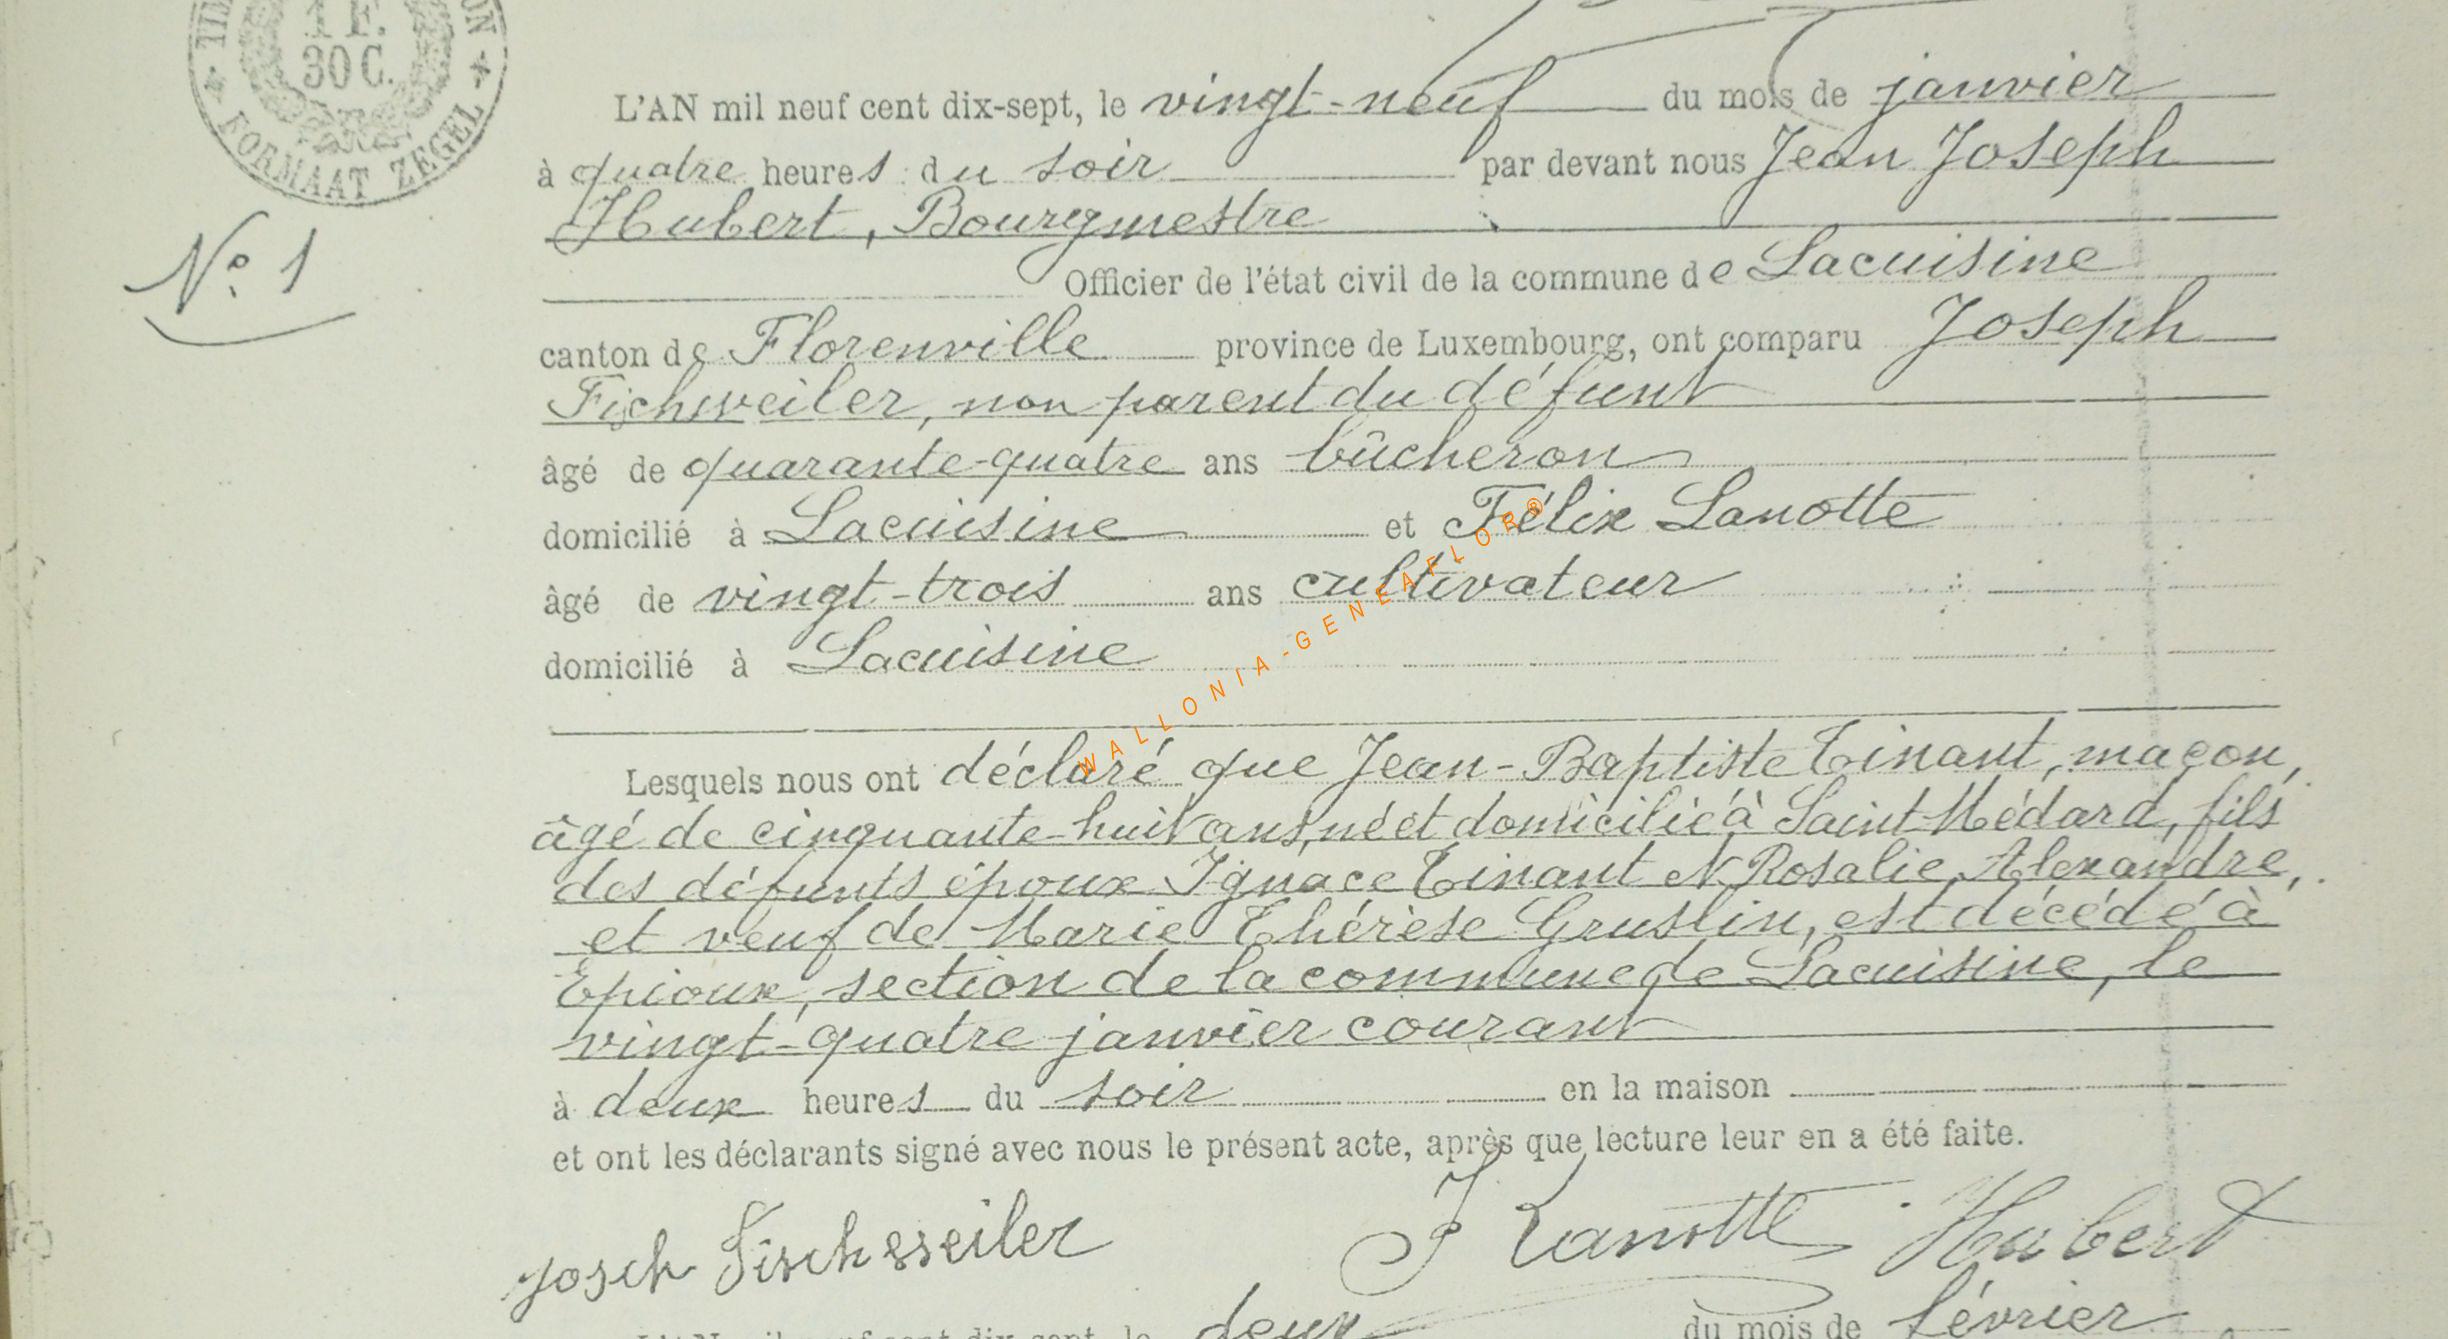 1 F.
30 C.
FORMAAT ZEGEL
L'AN mil neuf cent dix-sept, le vingt-neuf du mois de janvier
à quatre heures du soir par devant nous Jean Joseph
Hubert, Bourgmestre
N° 1
Officier de l'état civil de la commune de Lacuisine
canton de Florenville province de Luxembourg, ont comparu Joseph
Fischweiler, non parent du défunt
âgé de quarante-quatre ans bûcheron
domicilié à Lacuisine et Félix Lanotte
âgé de vingt-trois ans cultivateur
domicilié à Lacuisine
WALLONIA-GENEAFLOR®
Lesquels nous ont déclaré que Jean-Baptiste Tinant, maçon,
âgé de cinquante-huit ans, né et domicilié à Saint-Médard, fils
des défunts époux Ignace Tinant et Rosalie Alexandre,
et veuf de Marie Thérèse Gruslin, est décédé à
Epioux, section de la commune de Lacuisine, le
vingt-quatre janvier courant
à deux heures du soir en la maison
et ont les déclarants signé avec nous le présent acte, après que lecture leur en a été faite.
Josch Fischweiler F Lanotte Hubert
deux du mois de février